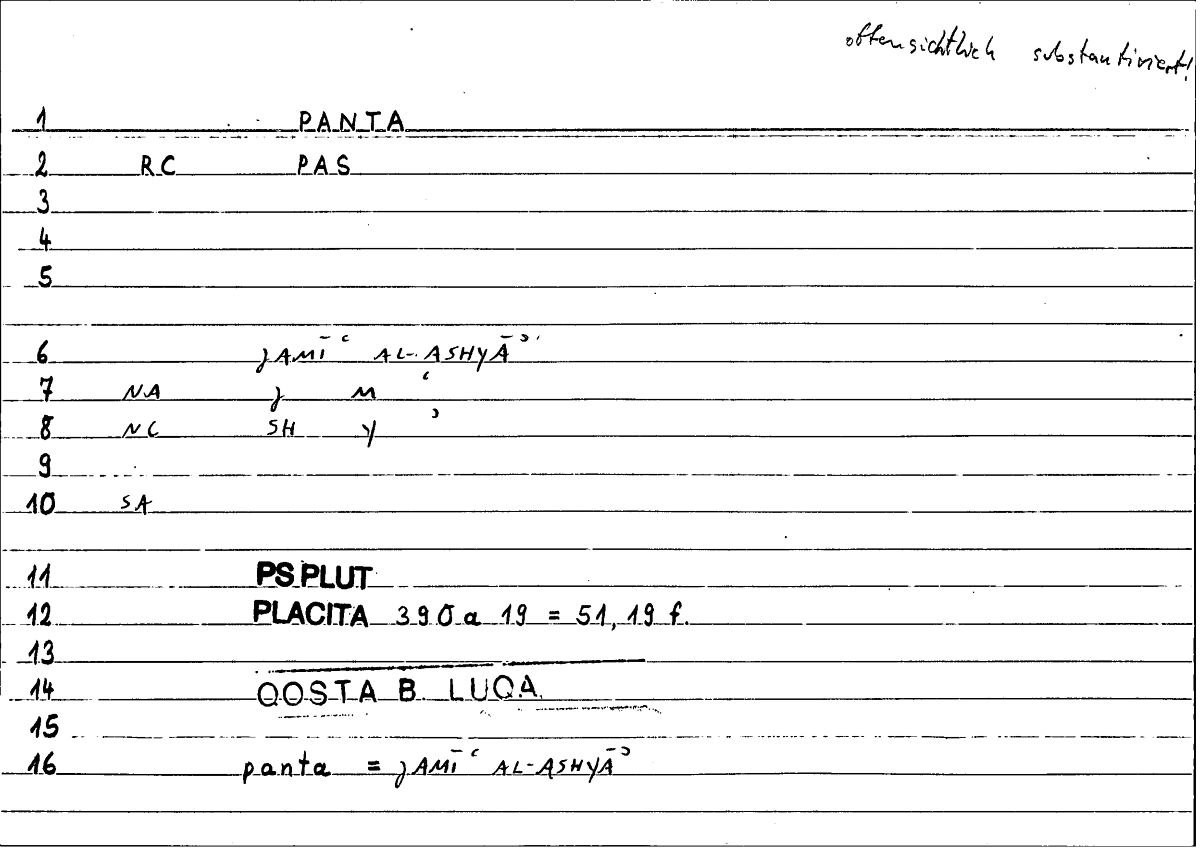 offensichtlich substantiviert!
1 PANTA
2 RC PAS
3
4
5
6 JAMĪʿ AL-ASHYĀʾ
7 NA J M ʿ
8 NC SH Y ʾ
9
10 SA
11 PS PLUT
12 PLACITA 390 a 19 = 51, 19 f.
13
14 QOSTA B. LUQA
15
16 panta = JAMĪʿ AL-ASHYĀʾ